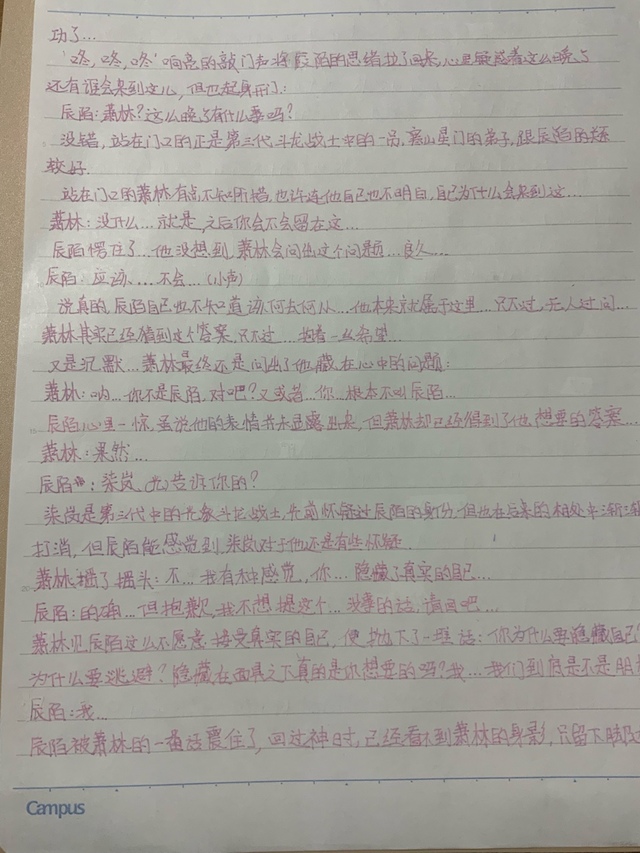 功了…
"咚,咚,咚"响亮的敲门声将辰陌的思绪拉了回来,心里疑惑着这么晚了
还有谁会来到这儿,但也起身开门:
辰陌:萧林?这么晚了有什么事吗?
没错,站在门口的正是第三代斗龙战士中的一员,离山星门的弟子,跟辰陌的关系
较好.
站在门口的萧林有点不知所措,也许连他自己也不明白,自己为什么会来到这…
萧林:没什么…就是,之后你会不会留在这…
辰陌愣住了…他没想到,萧林会问出这个问题…良久…
辰陌:应该、…不会…(小声)
说真的,辰陌自己也不知道该何去何从…他本来就属于这里…只不过,无人过问…
萧林其实已经猜到这个答案,只不过…抱着一丝希望…
又是沉默…萧林最终还是问出了他藏在心中的问题:
萧林:呐…你不是辰陌,对吧?又或者…你…根本不叫辰陌…
辰陌心里一惊,虽说他的表情并未显露出来,但萧林却已经得到了他想要的答案…
萧林:果然…
辰陌:柒岚,告诉你的?
柒岚是第三代中的元级斗龙战士,先前怀疑过辰陌的身份,但也在后来的相处中渐渐
打消,但辰陌能感觉到,柒岚对于他还是有些怀疑.
萧林摇了摇头:不…我有种感觉,你…隐藏了真实的自己…
辰陌:的确…但抱歉,我不想提这个…没事的话,请回吧…
萧林见辰陌这么不愿意接受真实的自己,便抛下了一堆话:你为什么要隐藏自己?
为什么要逃避?隐藏在面具之下真的是你想要的吗?我…我们到底是不是朋
辰陌:我…
辰陌被萧林的一番话震住了,回过神时,已经看不到萧林的身影,只留下脚
Campus